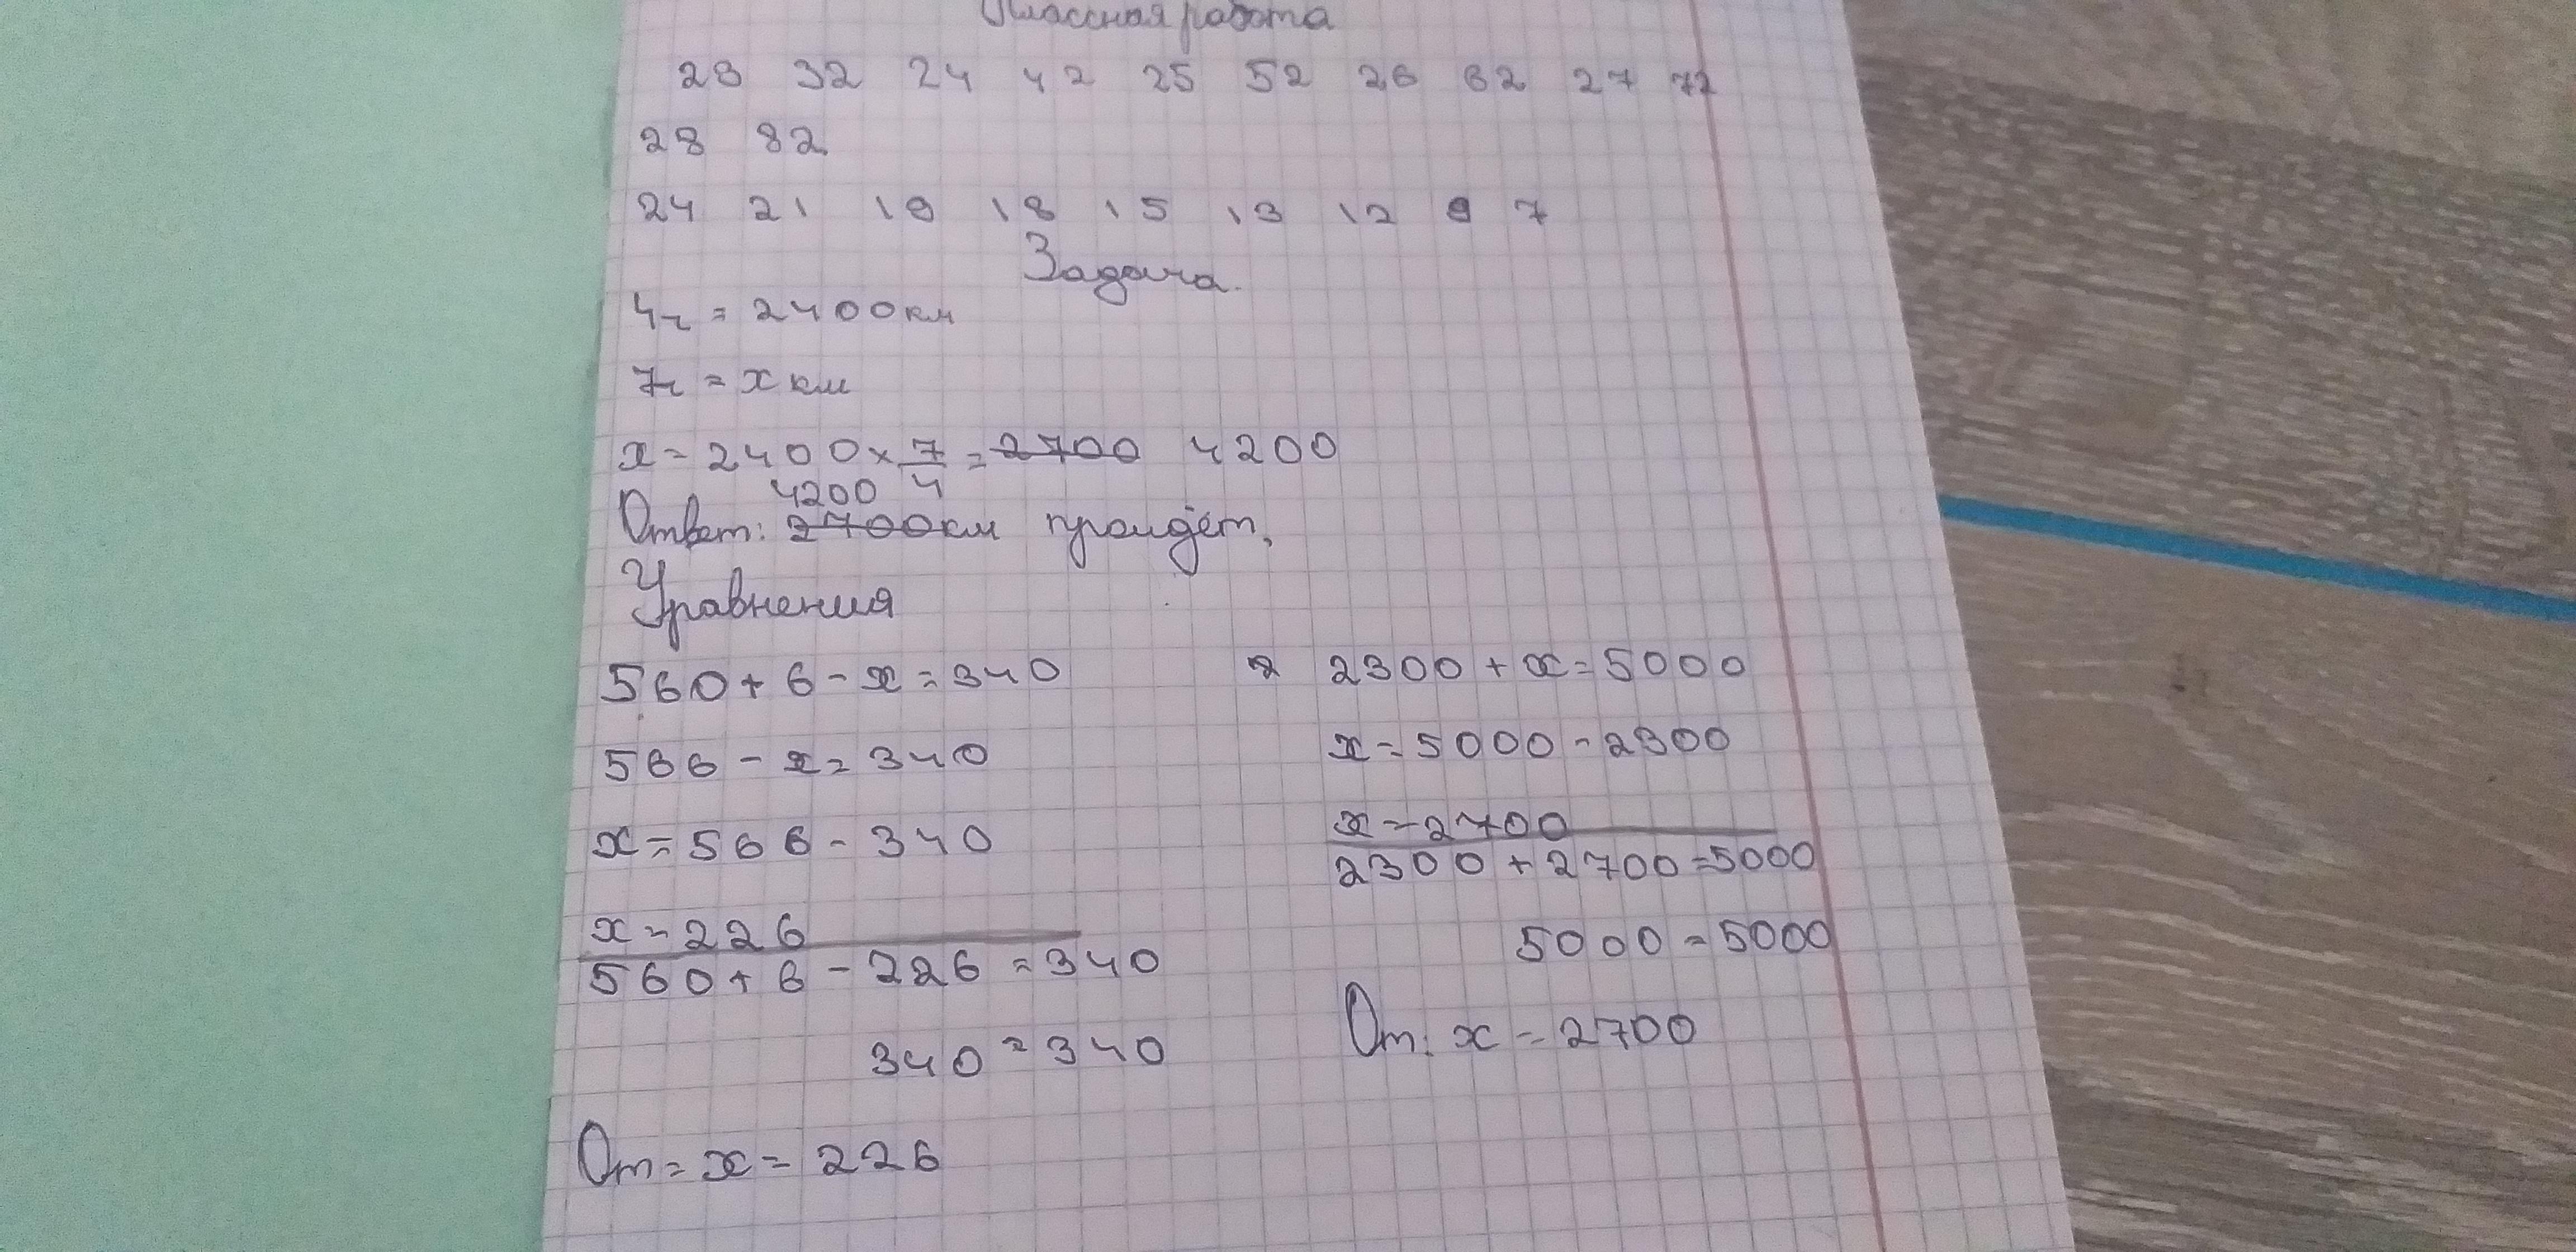 Классная работа
23 32 24 42 25 52 26 62 27 72
28 82
24 21 19 18 15 13 12 9 7
Задача.
4ч = 2400км
7ч = x км
x = 2400 × 7/4 = 2700 4200
4200
Ответ: 2700км проидёт,
Уравнения
560 + 6 - x = 340
566 - x = 340
x = 566 - 340
x = 226
560 + 6 - 226 = 340
340 = 340
От = x = 226
2 2300 + x = 5000
x = 5000 - 2300
x = 2700
2300 + 2700 = 5000
5000 = 5000
От: x = 2700